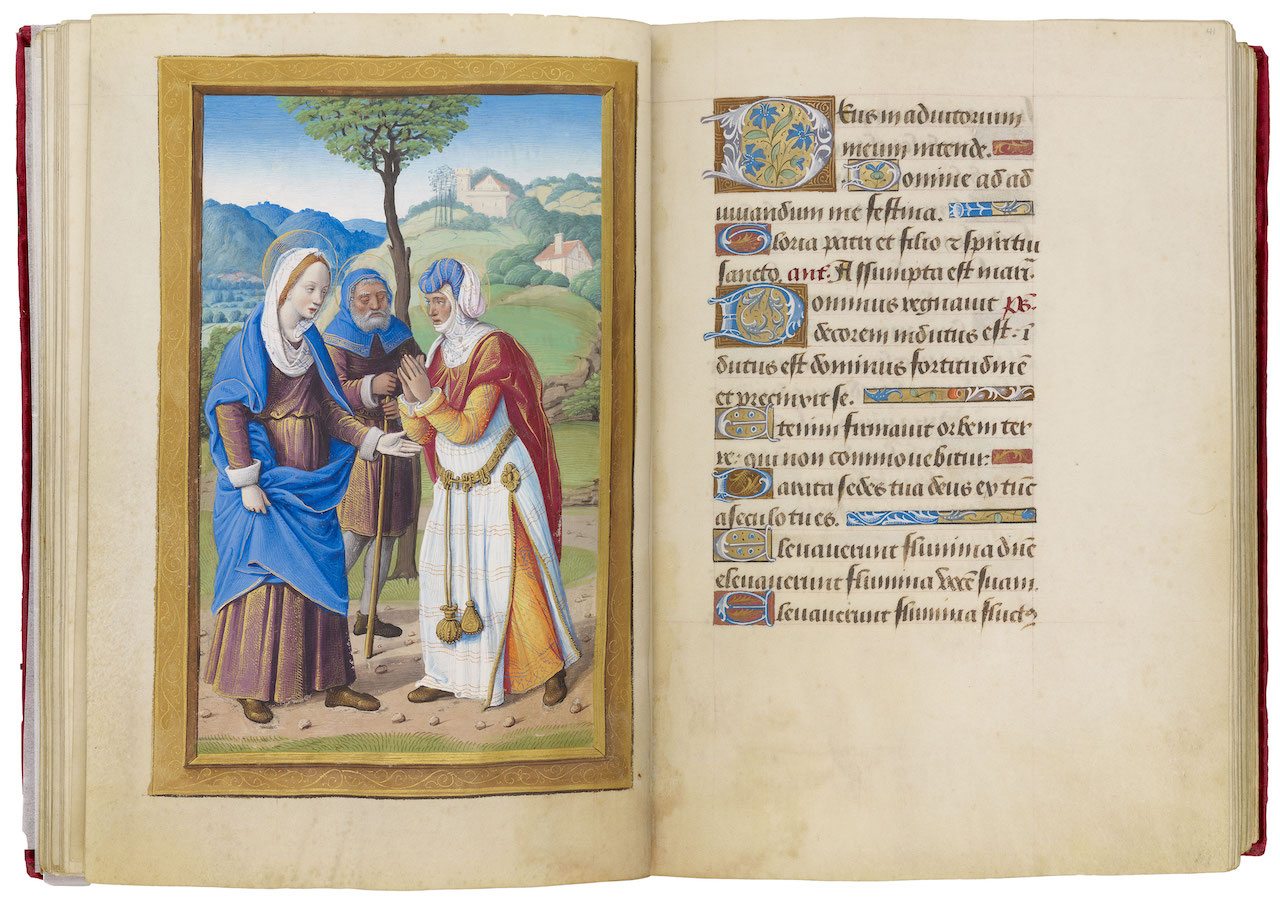 41
Deus in adiutorium
meum intende.
Domine ad ad
iuuandum me festina.
Gloria patri et filio ⁊ spiritui
sancto. ant. Assumpta est mari.
Dominus regnauit ps.
decorem indutus est. ī
dutus est dominus fortitudinē
et precinxit se.
Etenim firmauit orbem ter
re: qui non commouebitur:
Parata sedes tua deus ex tūc
a seculo tu es.
Eleuauerunt flumina dn̄e
eleuauerunt flumina vocē suam.
Eleuauerunt flumina fluctꝰ